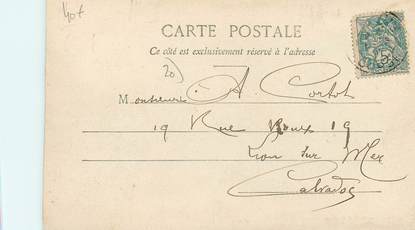 40f
CARTE POSTALE
Ce côté est exclusivement réservé à l'adresse
20)
Monsieur A. Cortot
19 Rue Roux 19
Lion sur Mer
Calvados